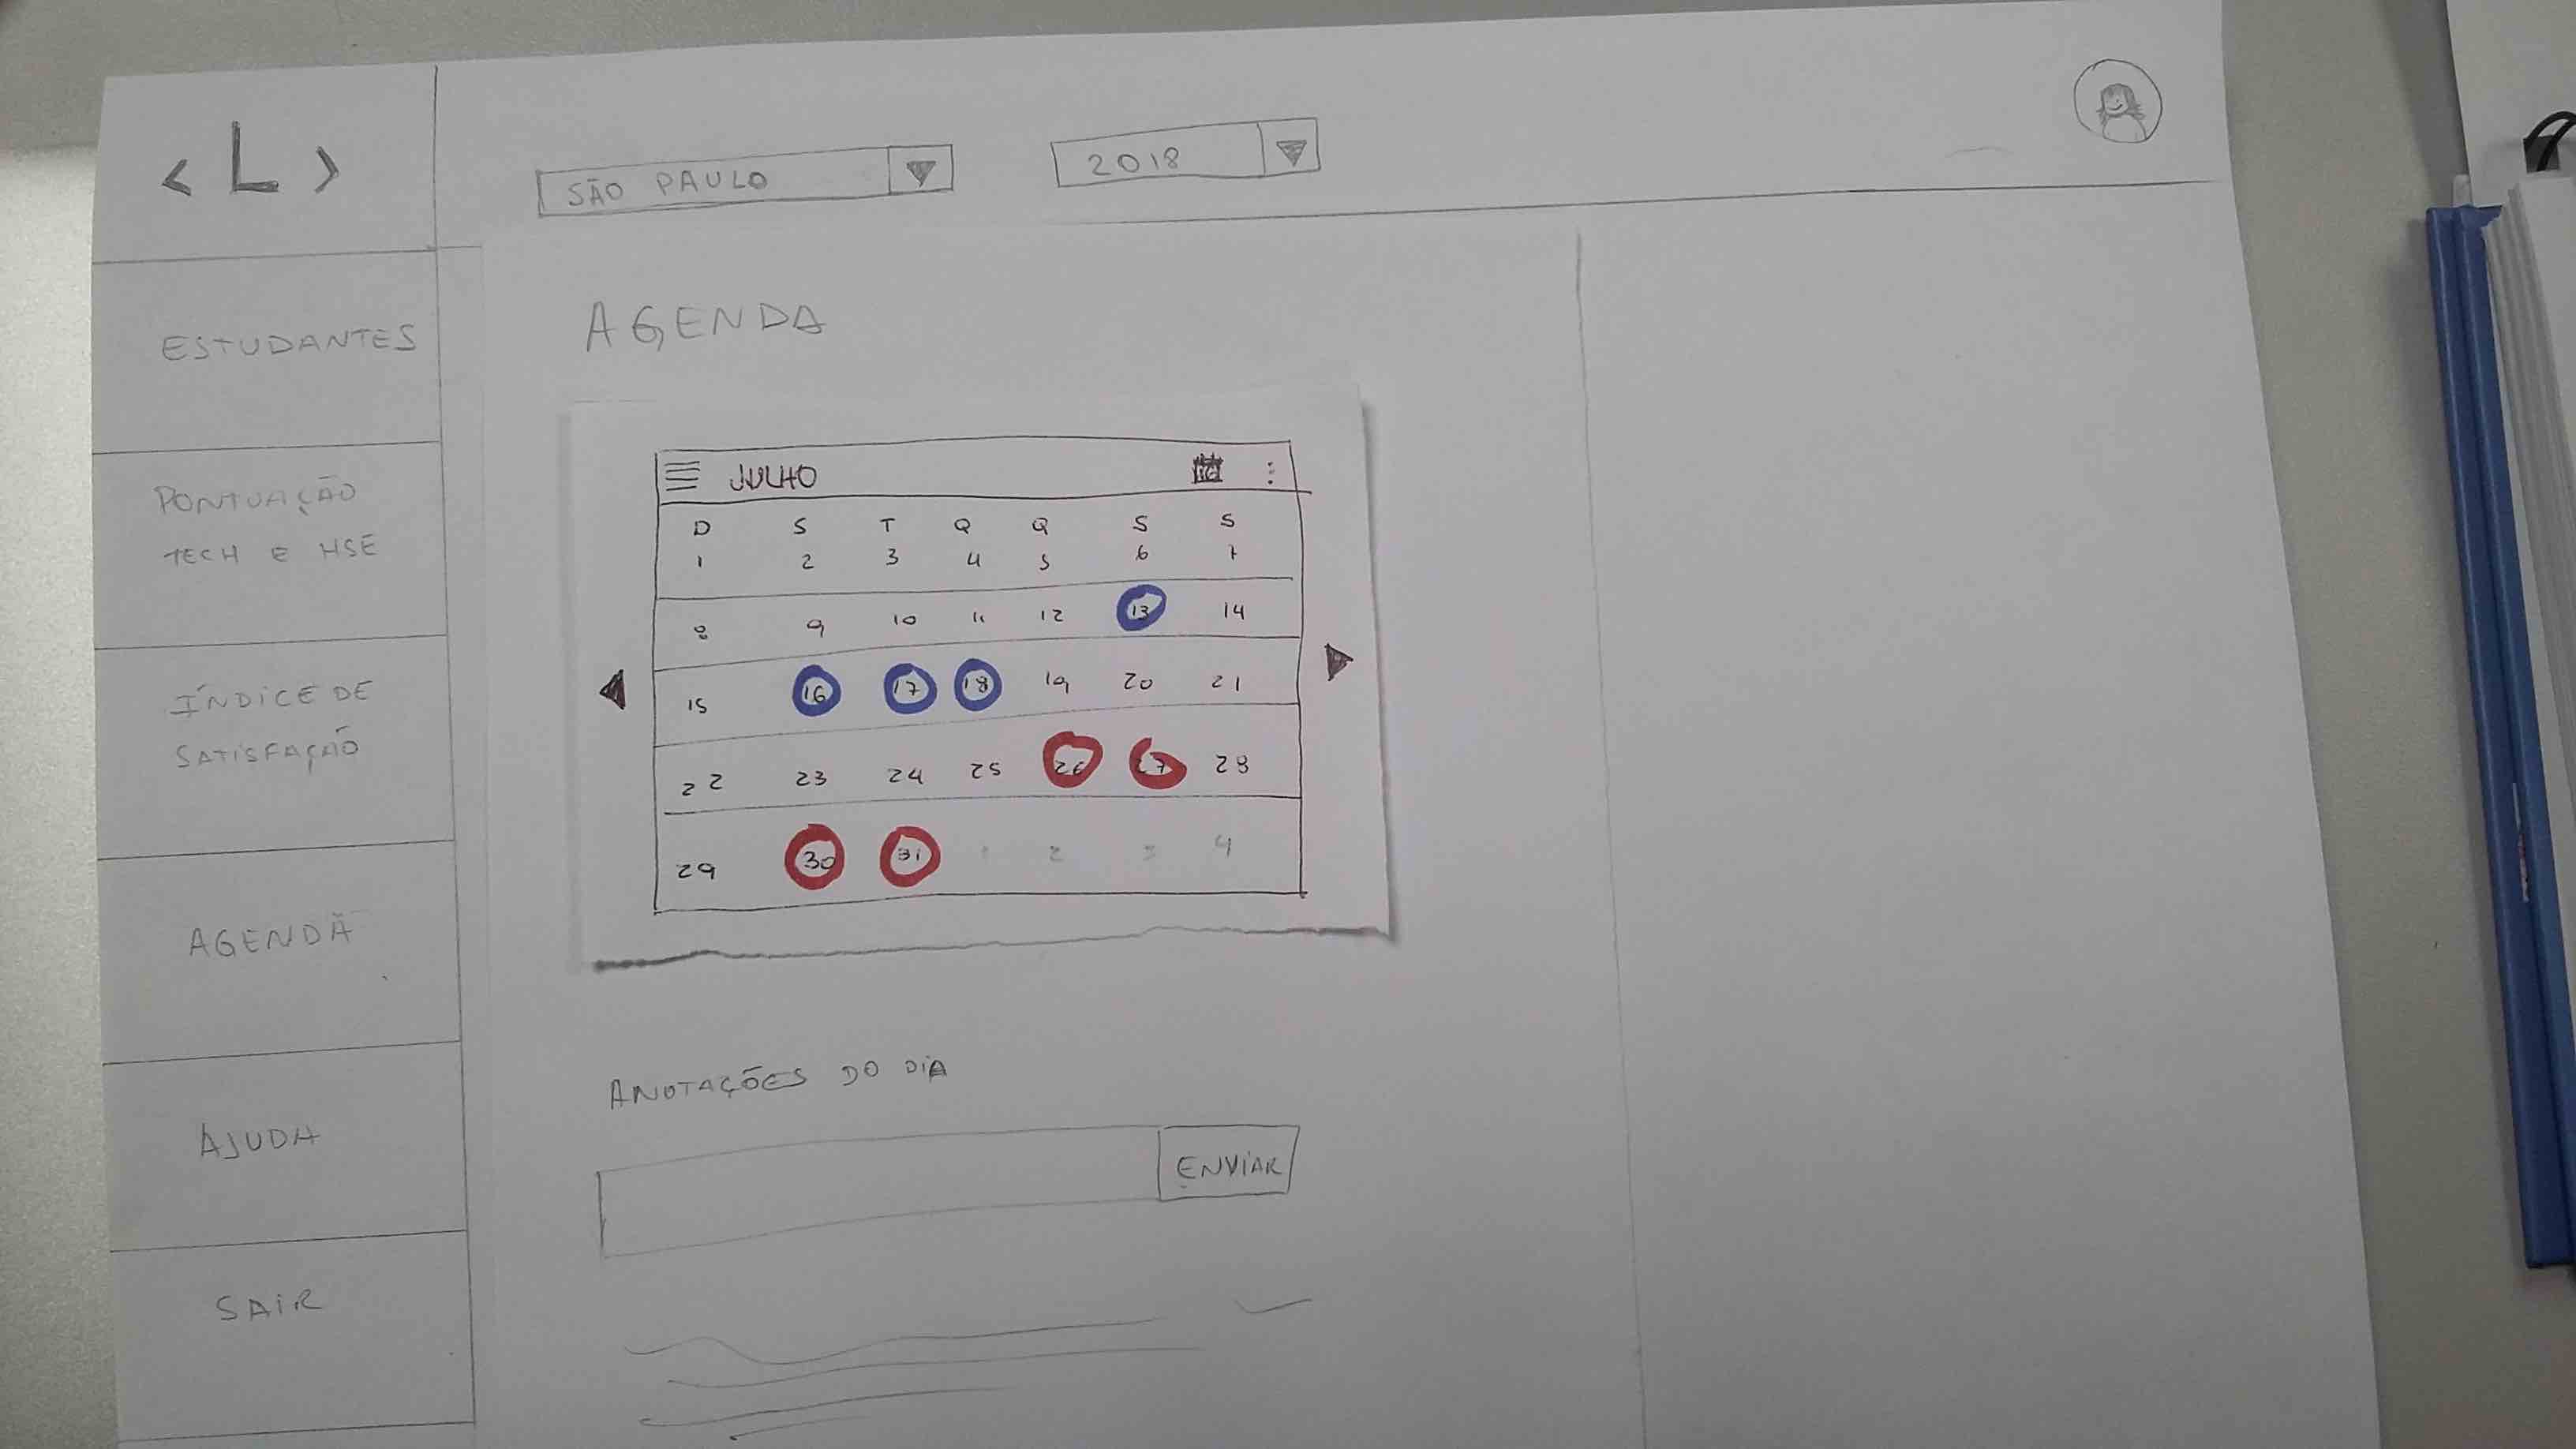 < L >
SÃO PAULO
2018
ESTUDANTES
PONTUAÇÃO
TECH E HSE
ÍNDICE DE
SATISFAÇÃO
AGENDA
AJUDA
SAIR
AGENDA
JULHO
D S T Q Q S S
1 2 3 4 5 6 7
8 9 10 11 12 13 14
15 16 17 18 19 20 21
22 23 24 25 26 27 28
29 30 31 1 2 3 4
ANOTAÇÕES DO DIA
ENVIAR